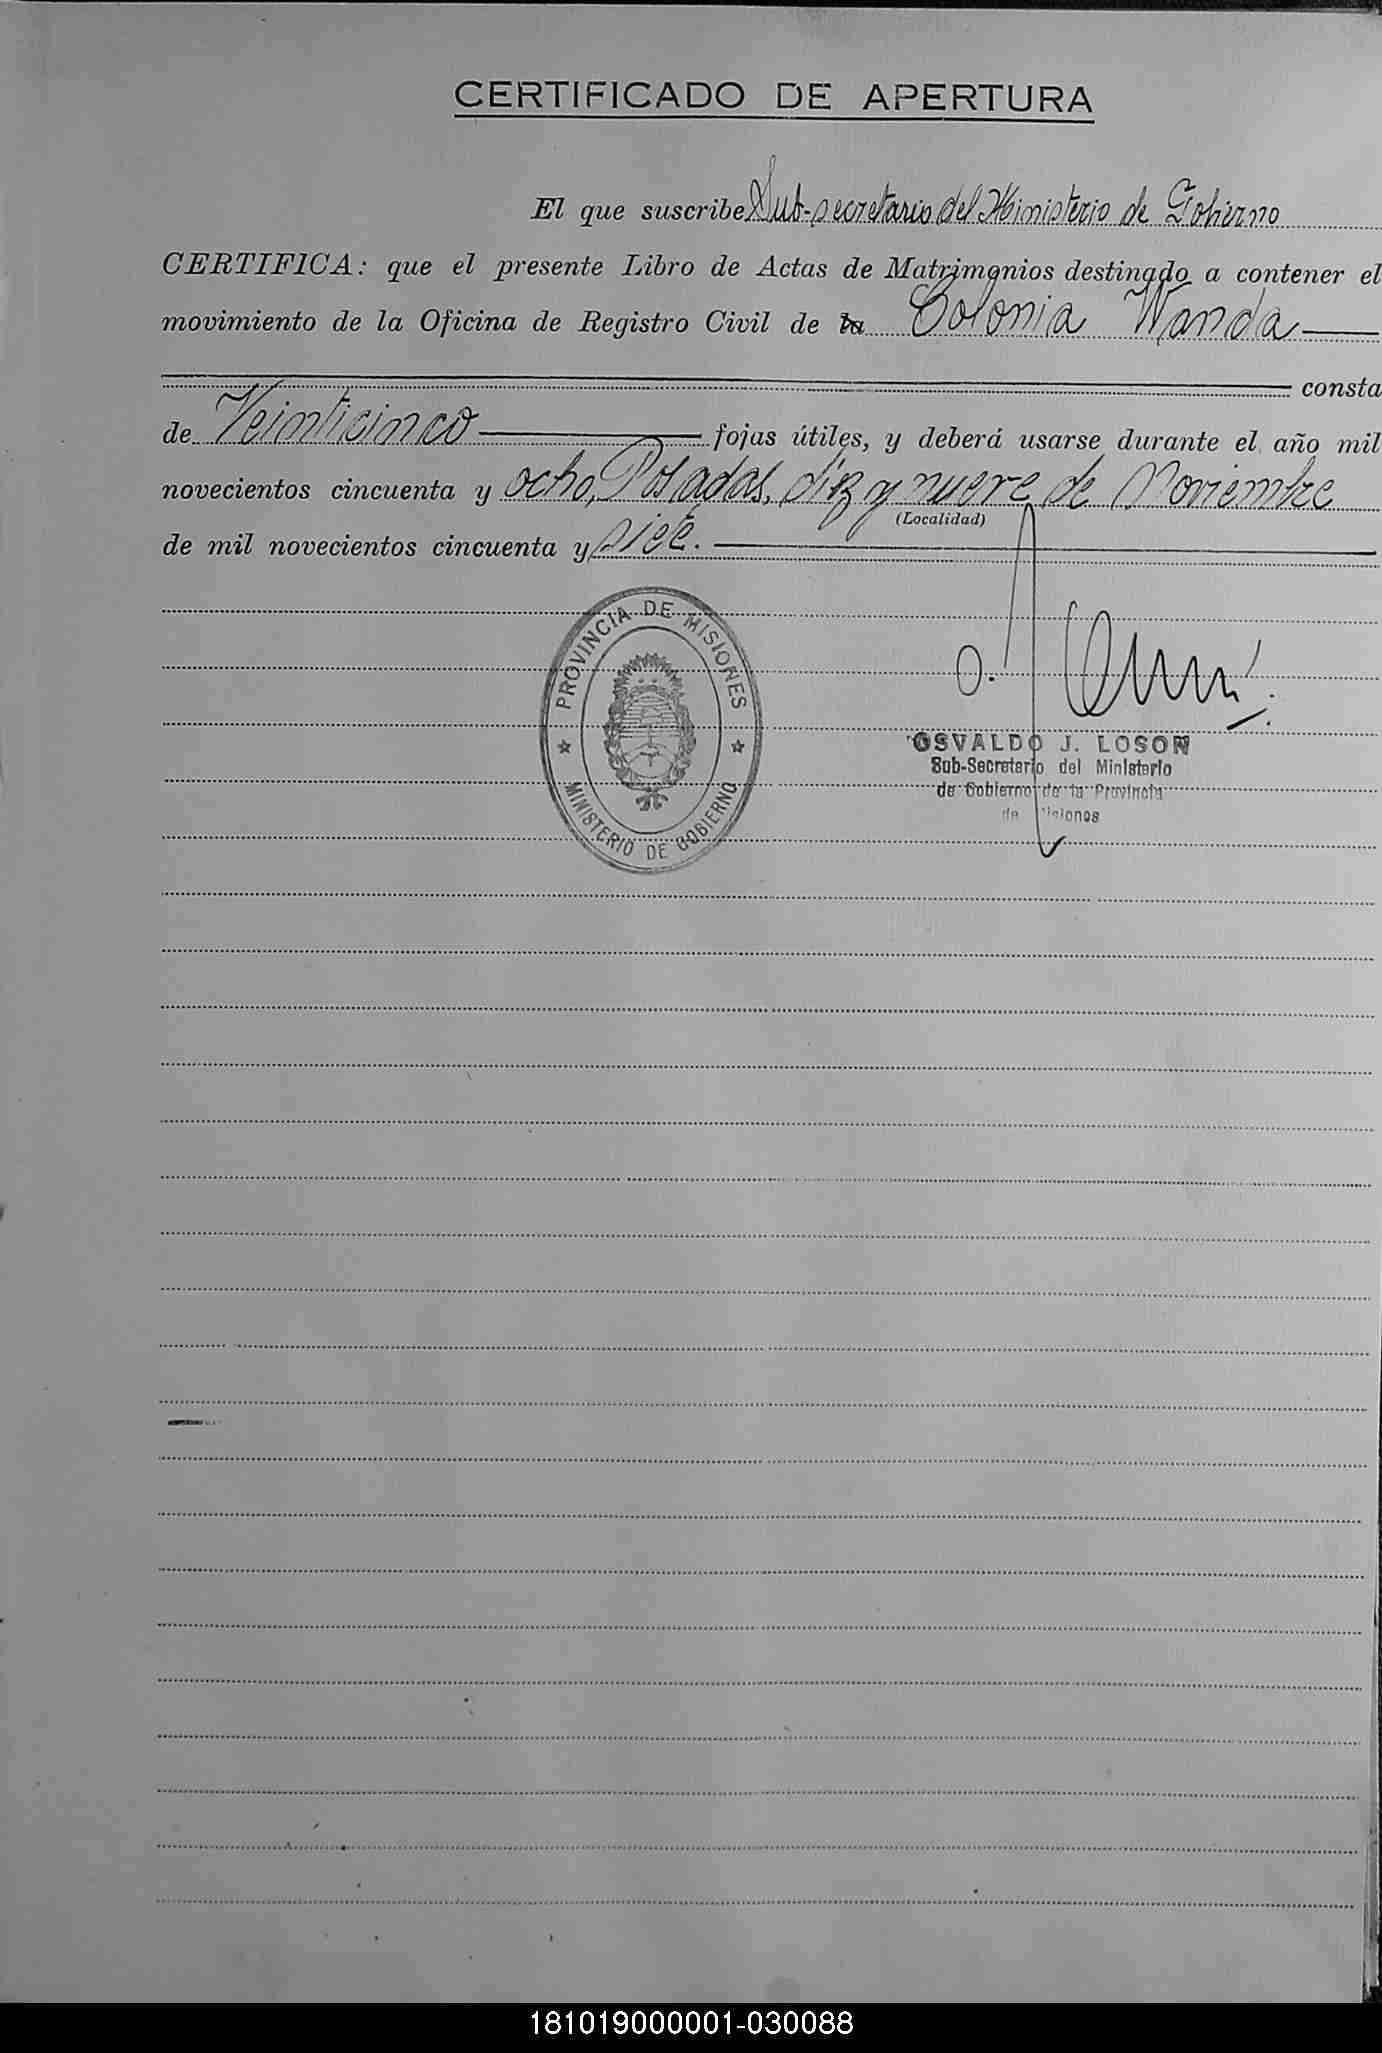 CERTIFICADO DE APERTURA
El que suscribe Sub-secretario del Ministerio de Gobierno
CERTIFICA: que el presente Libro de Actas de Matrimonios destinado a contener el
movimiento de la Oficina de Registro Civil de la Colonia Wanda
consta
de Veinticinco fojas útiles, y deberá usarse durante el año mil
novecientos cincuenta y ocho, Posadas, diez y nueve de Noviembre
(Localidad)
de mil novecientos cincuenta y siete.
PROVINCIA DE MISIONES
MINISTERIO DE GOBIERNO
OSVALDO J. LOSON
Sub-Secretario del Ministerio
de Gobierno de la Provincia
de Misiones
181019000001-030088